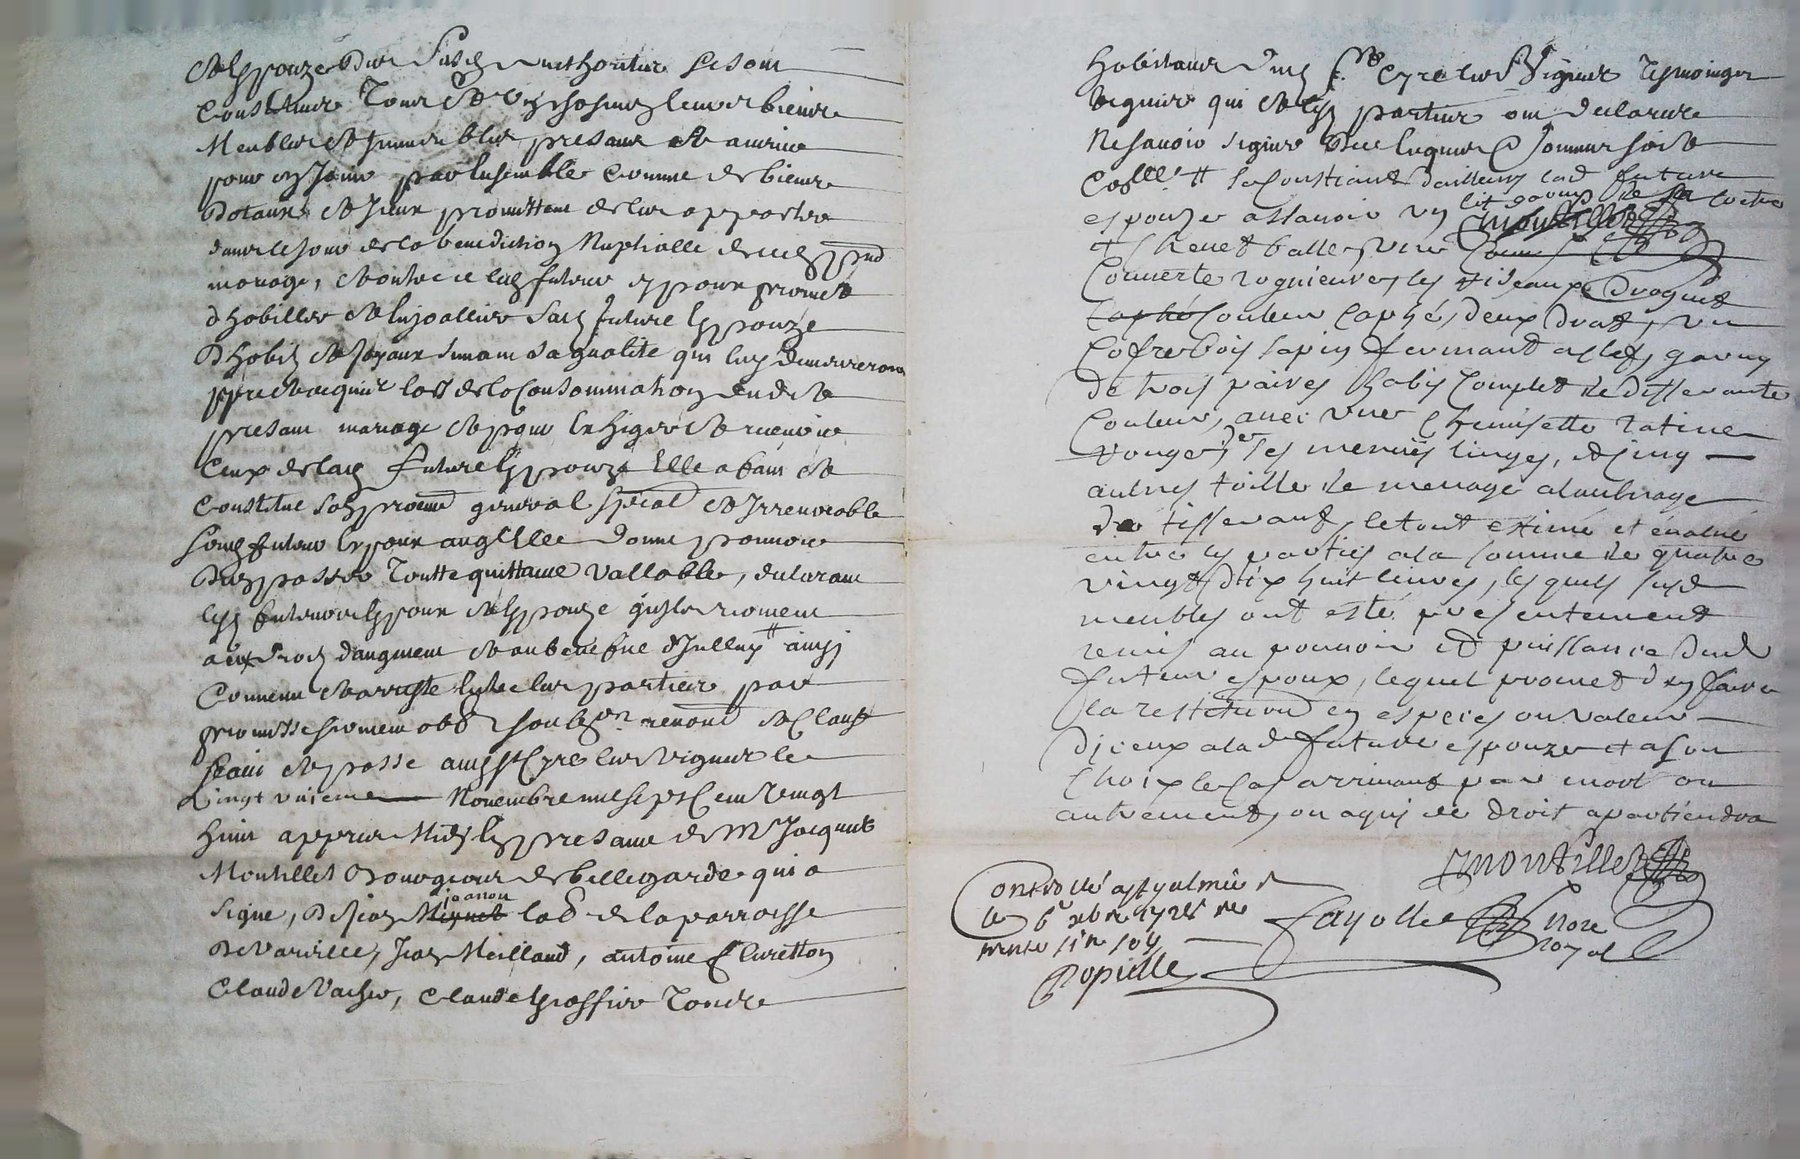 et Espouze de susd authoritée se sont
Constitués Tous et Ungs chascungs leurs biens
Meubles et Immeubles presants et advenir
pour en Jouir par Ensemble Comme de biens
Dotaux et Iceux promettent de les apporter
dans le Jour de la benediction Nuptialle de leurd
mariage, et oultre ce led futur Espoux promet
d'habiller et Enjoaller sad future Espouze
D'habits et Joyaux suivant sa qualité qui luy demeureront
acquis lors de la Consommation dudit
presant mariage et pour Exiger et recevoir
Ceux de lad future Espouze Elle a fait et
Constitué son procureur general special et Irrevocable
led futur Espoux auquel Elle donne pouvoir
D'en passer Toutte quittance Vallable, declarant
lesd futurs Espoux et Espouze
aux droits d'augment et au benefice d'Icelluy # ainsy
Convenu et arresté Entre les parties par
promesse serment obb soub renond et Clause
fait et passé aud St Cyre les Vignes le
vingt unieme Novembre mil sept Cent Vingt
huit appres Midy En presance de Mr Jacques
Montillet Bourgeois de bellegarde qui a
signé, De Jean joanon lab de la parroisse
De Varille, Jean Meilland, antoine Cluretton
Claude Vacher, Claude Tous
habitants dud St Cyre les Vignes Tesmoings
Requis qui et les parties ont declaré
Ne savoir signer De ce Enquis et sommes soit
Coll # se Constitue d'ailleurs lad future
espouze assavoir un lit garny de sa coitre
Chevet balle, une
Couverte rideaux Droguet
Couleur Caphé, deux draps, un
Cofre bois sapin fermant a clef, garny
de trois paires habis Complet de differante
Couleur, avec une Chemisette ratine
rouge, ses menus linges, et
autres toille de menage alaubrage
de tisserant, le tout estimé et évalué
entre les parties a la somme de quatre
vingt dix huit livres, lesquels susd
meubles ont esté presentement
remis au pouvoir et puissance dud
futur espoux, lequel promet d'en faire
la restitution en especes ou valeur
d'iceux a lad future espouze et a son
Choix le Cas arrivant par mort ou
autrement, ou a qui de droit apartiendra
Montillet
Controllé a St galmier
le 6e xbre 1728 Re
trente six s
Popielle
Fayolle Nore
royal